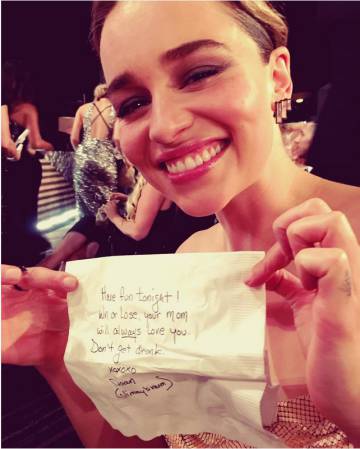 Have fun tonight!
Win or Lose, your mom
will always love you.
Don't get drunk.
xoxoxo
Susan
(slimay's mum)